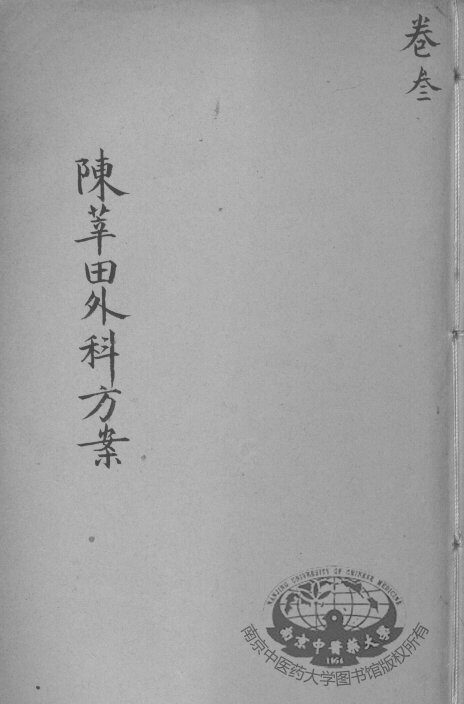 卷叁
陳莘田外科方案
NANJING UNIVERSITY OF CHINESE MEDICINE
南京中醫藥大學
1954
南京中医药大学图书馆版权所有